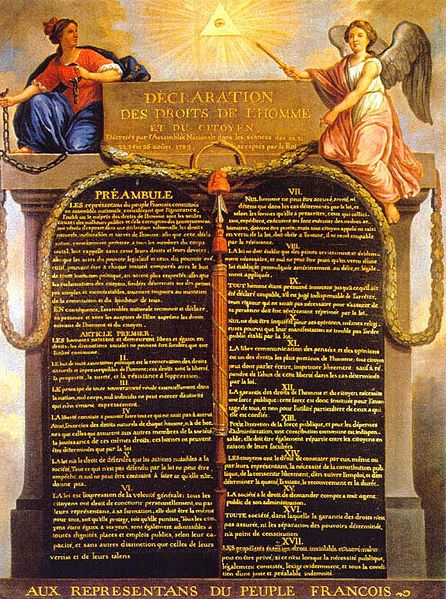 DÉCLARATION
DES DROITS DE L'HOMME
ET DU CITOYEN,
Décrétés par l'Assemblée Nationale dans les séances des 20, 21
23, 24 et 26 août 1789, acceptés par le Roi
PRÉAMBULE
LES représentans du peuple François, constitués
en assemblée nationale, considérant que l'ignorance,
l'oubli ou le mépris des droits de l'homme sont les seules
causes des malheurs publics et de la corruption des gouvernemens
ont résolu d'exposer dans une déclaration solemnelle, les droits
naturels, inaliénables et sacrés de l'homme; afin que cette décla-
ration, constamment présente à tous les membres du corps
social, leur rappelle sans cesse leurs droits et leurs devoirs;
afin que les actes du pouvoir législatif et ceux du pouvoir exé-
cutif, pouvant être à chaque instant comparés avec le but
de toute institution politique, en soient plus respectés; afin que
les réclamations des citoyens, fondées désormais sur des princi-
pes simples et incontestables, tournent toujours au maintien
de la constitution et du bonheur de tous.
EN conséquence, l'assemblée nationale reconnoit et déclare,
en présence et sous les auspices de l'Etre suprême les droits
suivans de l'homme et du citoyen.
ARTICLE PREMIER.
LES hommes naissent et demeurent libres et égaux en
droits. les distinctions sociales ne peuvent être fondées que sur
l'utilité commune.
II.
LE but de toute association politique est la conservation des droits
naturels et imprescriptibles de l'homme; ces droits sont la liberté,
la propriété, la sureté, et la résistance à l'oppression.
III.
LE principe de toute souveraineté réside essentiellement dans
la nation, nul corps, nul individu ne peut exercer d'autorité
qui n'en émane expressément.
IV.
LA liberté consiste à pouvoir faire tout ce qui ne nuit pas à autrui
Ainsi, l'exercice des droits naturels de chaque homme, n'a de bor-
nes que celles qui assurent aux autres membres de la société
la jouissance de ces mêmes droits; ces bornes ne peuvent
être déterminées que par la loi
V.
LA loi n'a le droit de défendre que les actions nuisibles à la
société. Tout ce qui n'est pas défendu par la loi ne peut être
empêché, et nul ne peut être contraint à faire ce qu'elle n'or-
donne pas.
VI.
LA loi est l'expression de la volonté générale; tous les
citoyens ont droit de concourir personnellement, ou par
leurs représentans, à sa formation; elle doit être la même
pour tous, soit qu'elle protège, soit qu'elle punisse. Tous les ci-
toyens étant égaux à ses yeux, sont également admissibles à
toutes dignités, places et emplois publics, selon leur capa-
cité, et sans autres distinctions que celles de leurs
vertus et de leurs talens
VII.
NUL homme ne peut être accusé, arrêté ni
détenu que dans les cas déterminés par la loi, et
selon les formes qu'elle a prescrites, ceux qui sollici-
tent, expédient, exécutent ou font exécuter des ordres ar-
bitraires, doivent être punis; mais tout citoyen appelé ou saisi
en vertu de la loi, doit obéir à l'instant, il se rend coupable
par la résistance.
VIII.
LA loi ne doit établir que des peines strictement et évidem-
ment nécessaires, et nul ne peut être puni qu'en vertu d'une
loi établie et promulguée antérieurement au délit, et légale-
ment appliquée.
IX.
TOUT homme étant présumé innocent jusqu'à ce qu'il ait
été déclaré coupable, s'il est jugé indispensable de l'arrêter,
toute rigueur qui ne seroit pas nécessaire pour s'assurer de
sa personne doit être sévèrement réprimée par la loi.
X.
NUL ne doit être inquiété pour ses opinions, mêmes religi-
euses pourvu que leur manifestation ne trouble pas l'ordre
public établi par la loi.
XI.
LA libre communication des pensées et des opinions
est un des droits les plus précieux de l'homme; tout citoyen
peut donc parler, écrire, imprimer librement: sauf à ré-
pondre de l'abus de cette liberté dans les cas déterminés
par la loi.
XII.
LA garantie des droits de l'homme et du citoyen nécessite
une force publique; cette force est donc instituée pour l'avan-
tage de tous, et non pour l'utilité particulière de ceux à qui
elle est confiée.
XIII.
POUR l'entretien de la force publique, et pour les dépenses
d'administration, une contribution commune est indispen-
sable; elle doit être également répartie entre les citoyens en
raison de leurs facultées.
XIV.
LES citoyens ont le droit de constater par eux même ou
par leurs représentans, la nécessité de la contribution pub-
lique, de la consentir librement, d'en suivre l'emploi, et d'en
déterminer la quotité, l'assiette, le recouvrement et la durée.
XV.
LA société a le droit de demander compte à tout agent
public de son administration.
XVI.
TOUTE société, dans laquelle la garantie des droits n'est
pas assurée, ni les séparation des pouvoirs déterminée,
n'a point de constitution.
XVII.
LES propriétés étant un droit inviolable et sacré, nul ne
peut en être privé, si ce n'est lorsque la nécessité publique,
légalement constatée, l'exige évidemment, et sous la condi-
tion d'une juste et préalable indemnité.
AUX REPRESENTANS DU PEUPLE FRANCOIS